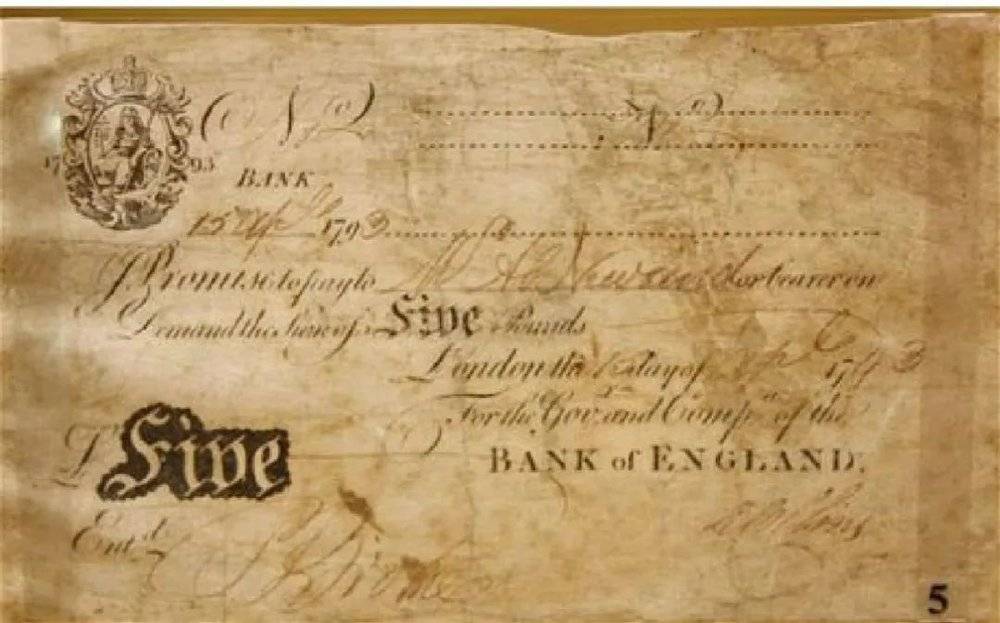 No No
17 93
BANK
15 Apl 1793
I Promise to pay to Mr Abm Newland or bearer on
Demand the Sume of Five Pounds
London the 15 day of Apl 1793
For the Govr and Compa of the
BANK of ENGLAND,
£ Five
Entd
5